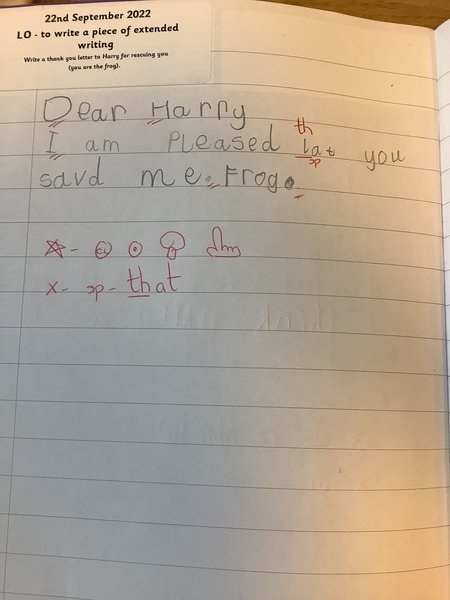 22nd September 2022
LO - to write a piece of extended
writing
Write a thank you letter to Harry for rescuing you
(you are the frog).
Dear Harry
th
I am pleased lat you
sp
savd me. Frog.
x - sp - that